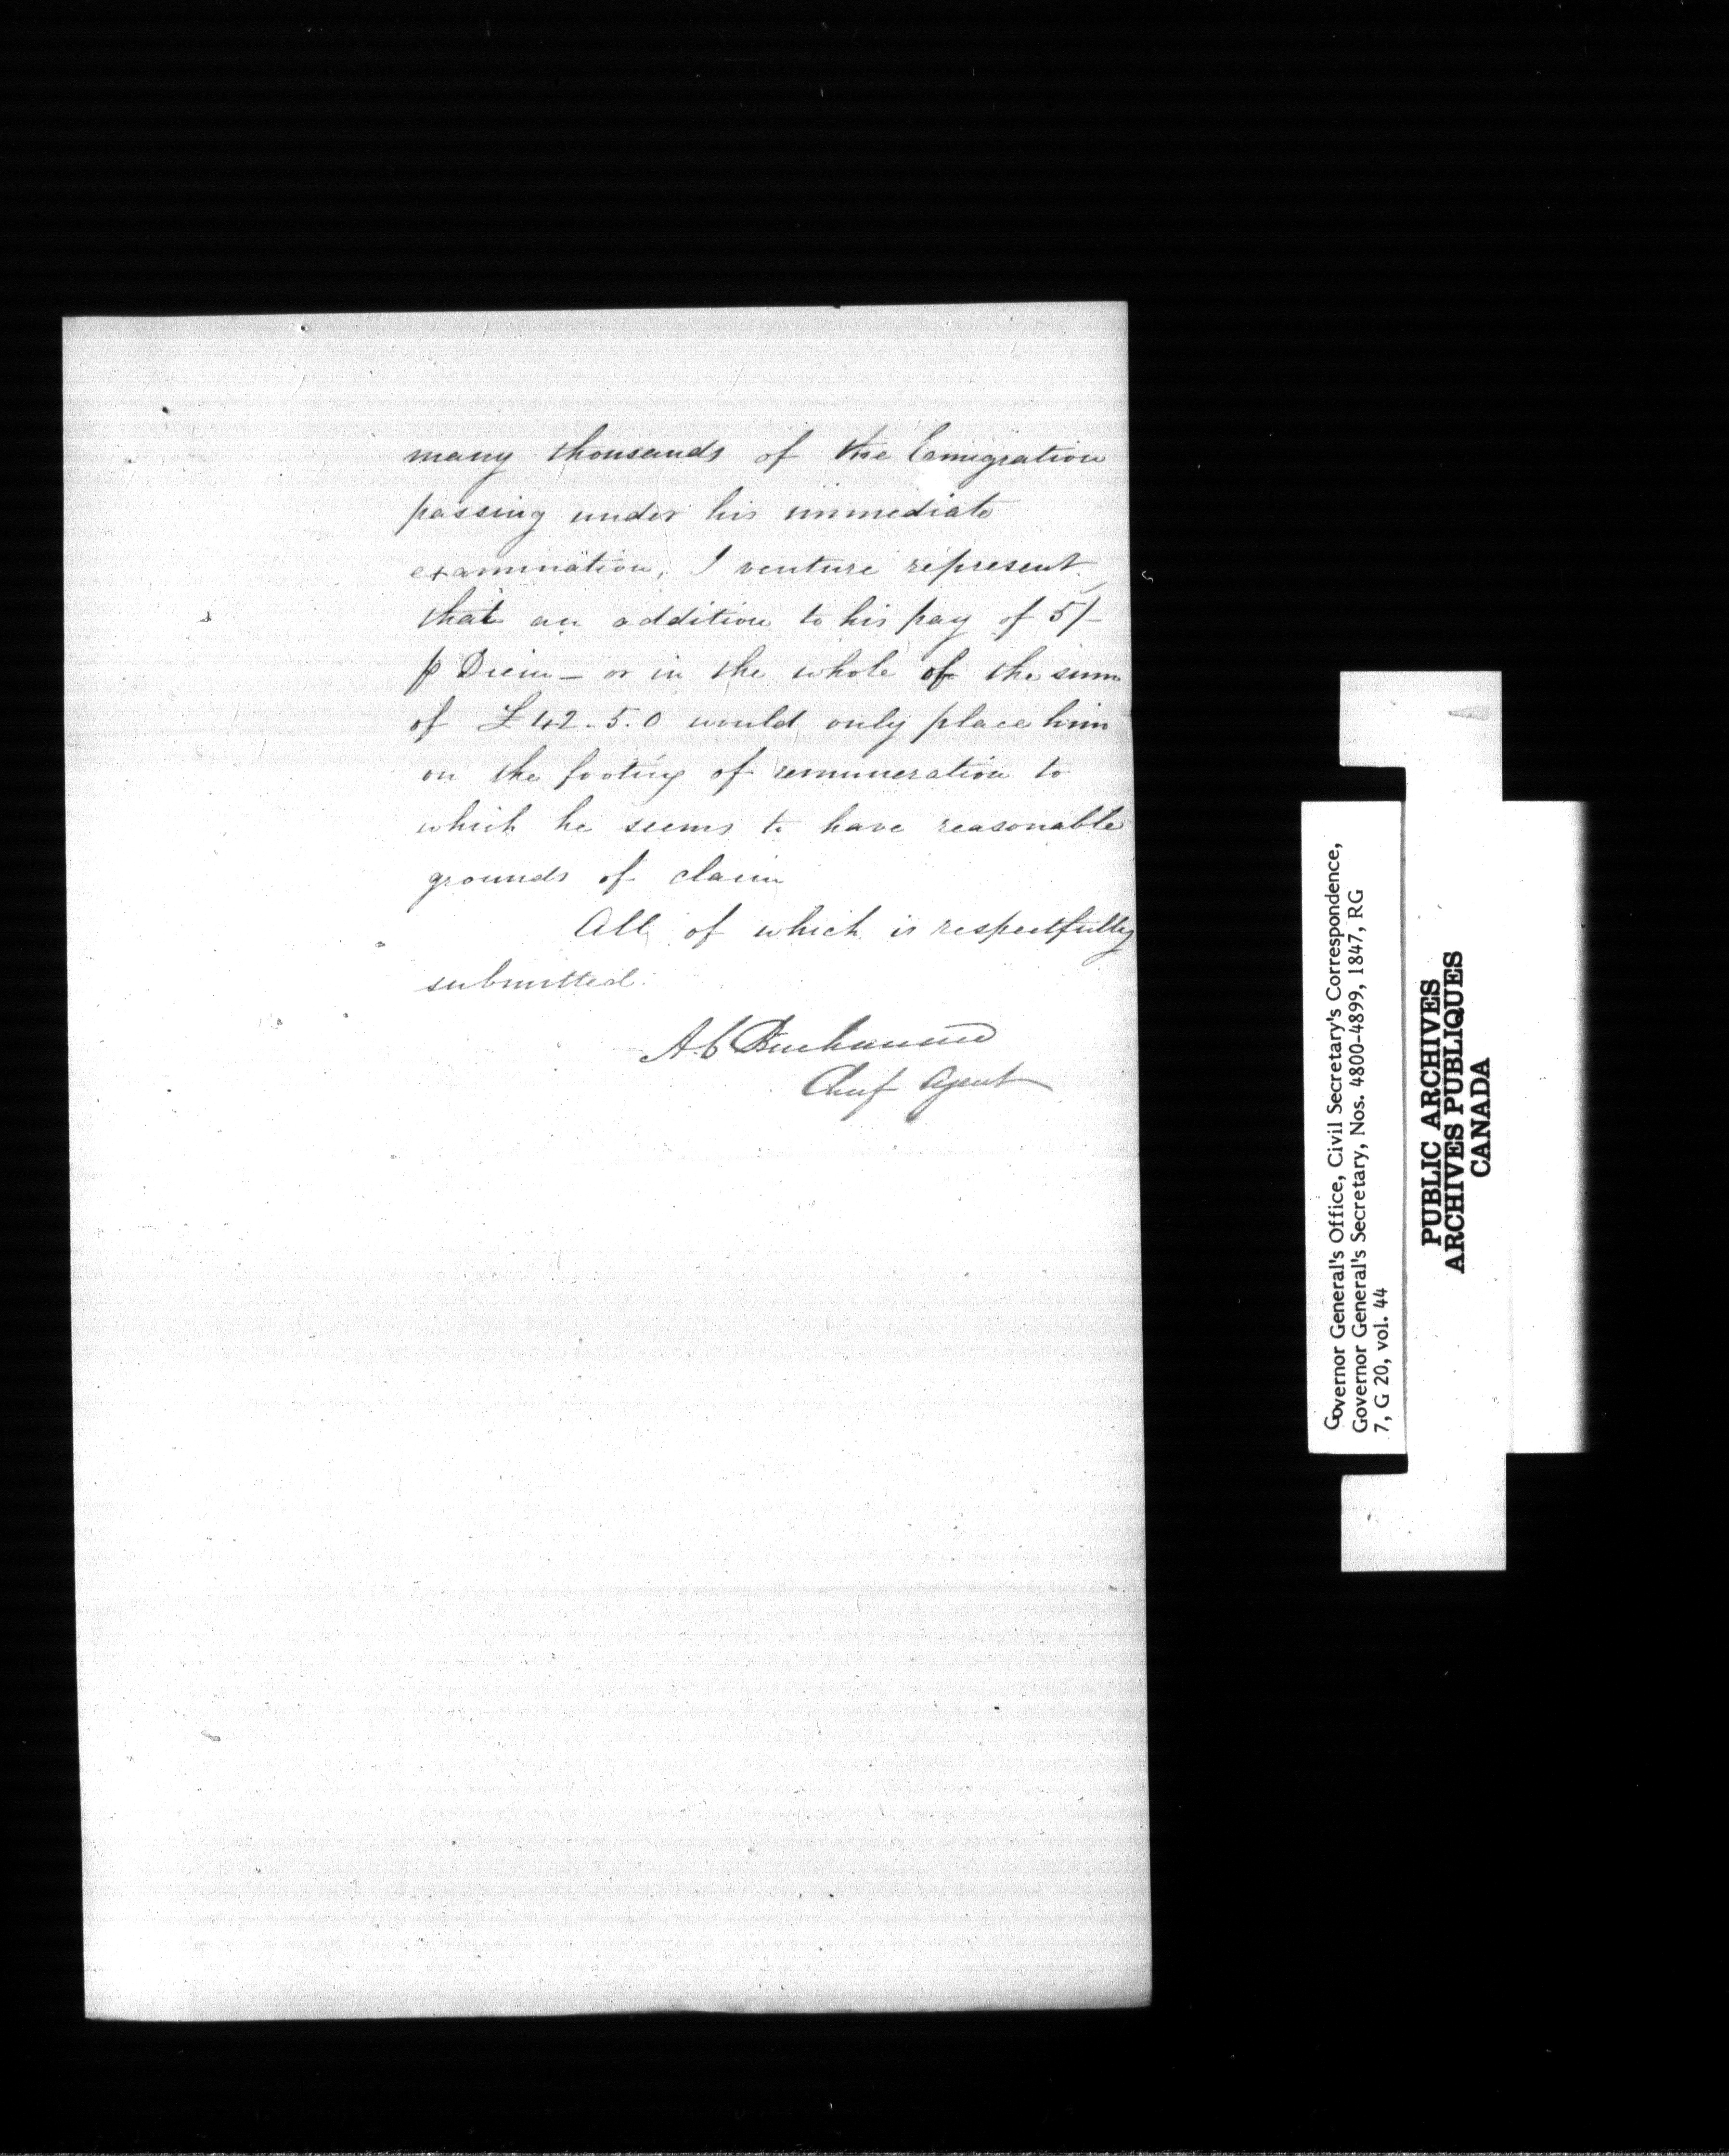 many thousands of the Emigration
passing under his immediate
examination, I venture represent
that an addition to his pay of 5/-
p Diem - or in the whole of the sum
of £42.5.0 would only place him
on the footing of remuneration to
which he seems to have reasonable
grounds of claim
All of which is respectfully
submitted.
A.C Buchanan
Chief Agent
Governor General's Office, Civil Secretary's Correspondence,
Governor General's Secretary, Nos. 4800-4899, 1847, RG
7, G 20, vol. 44
PUBLIC ARCHIVES
ARCHIVES PUBLIQUES
CANADA